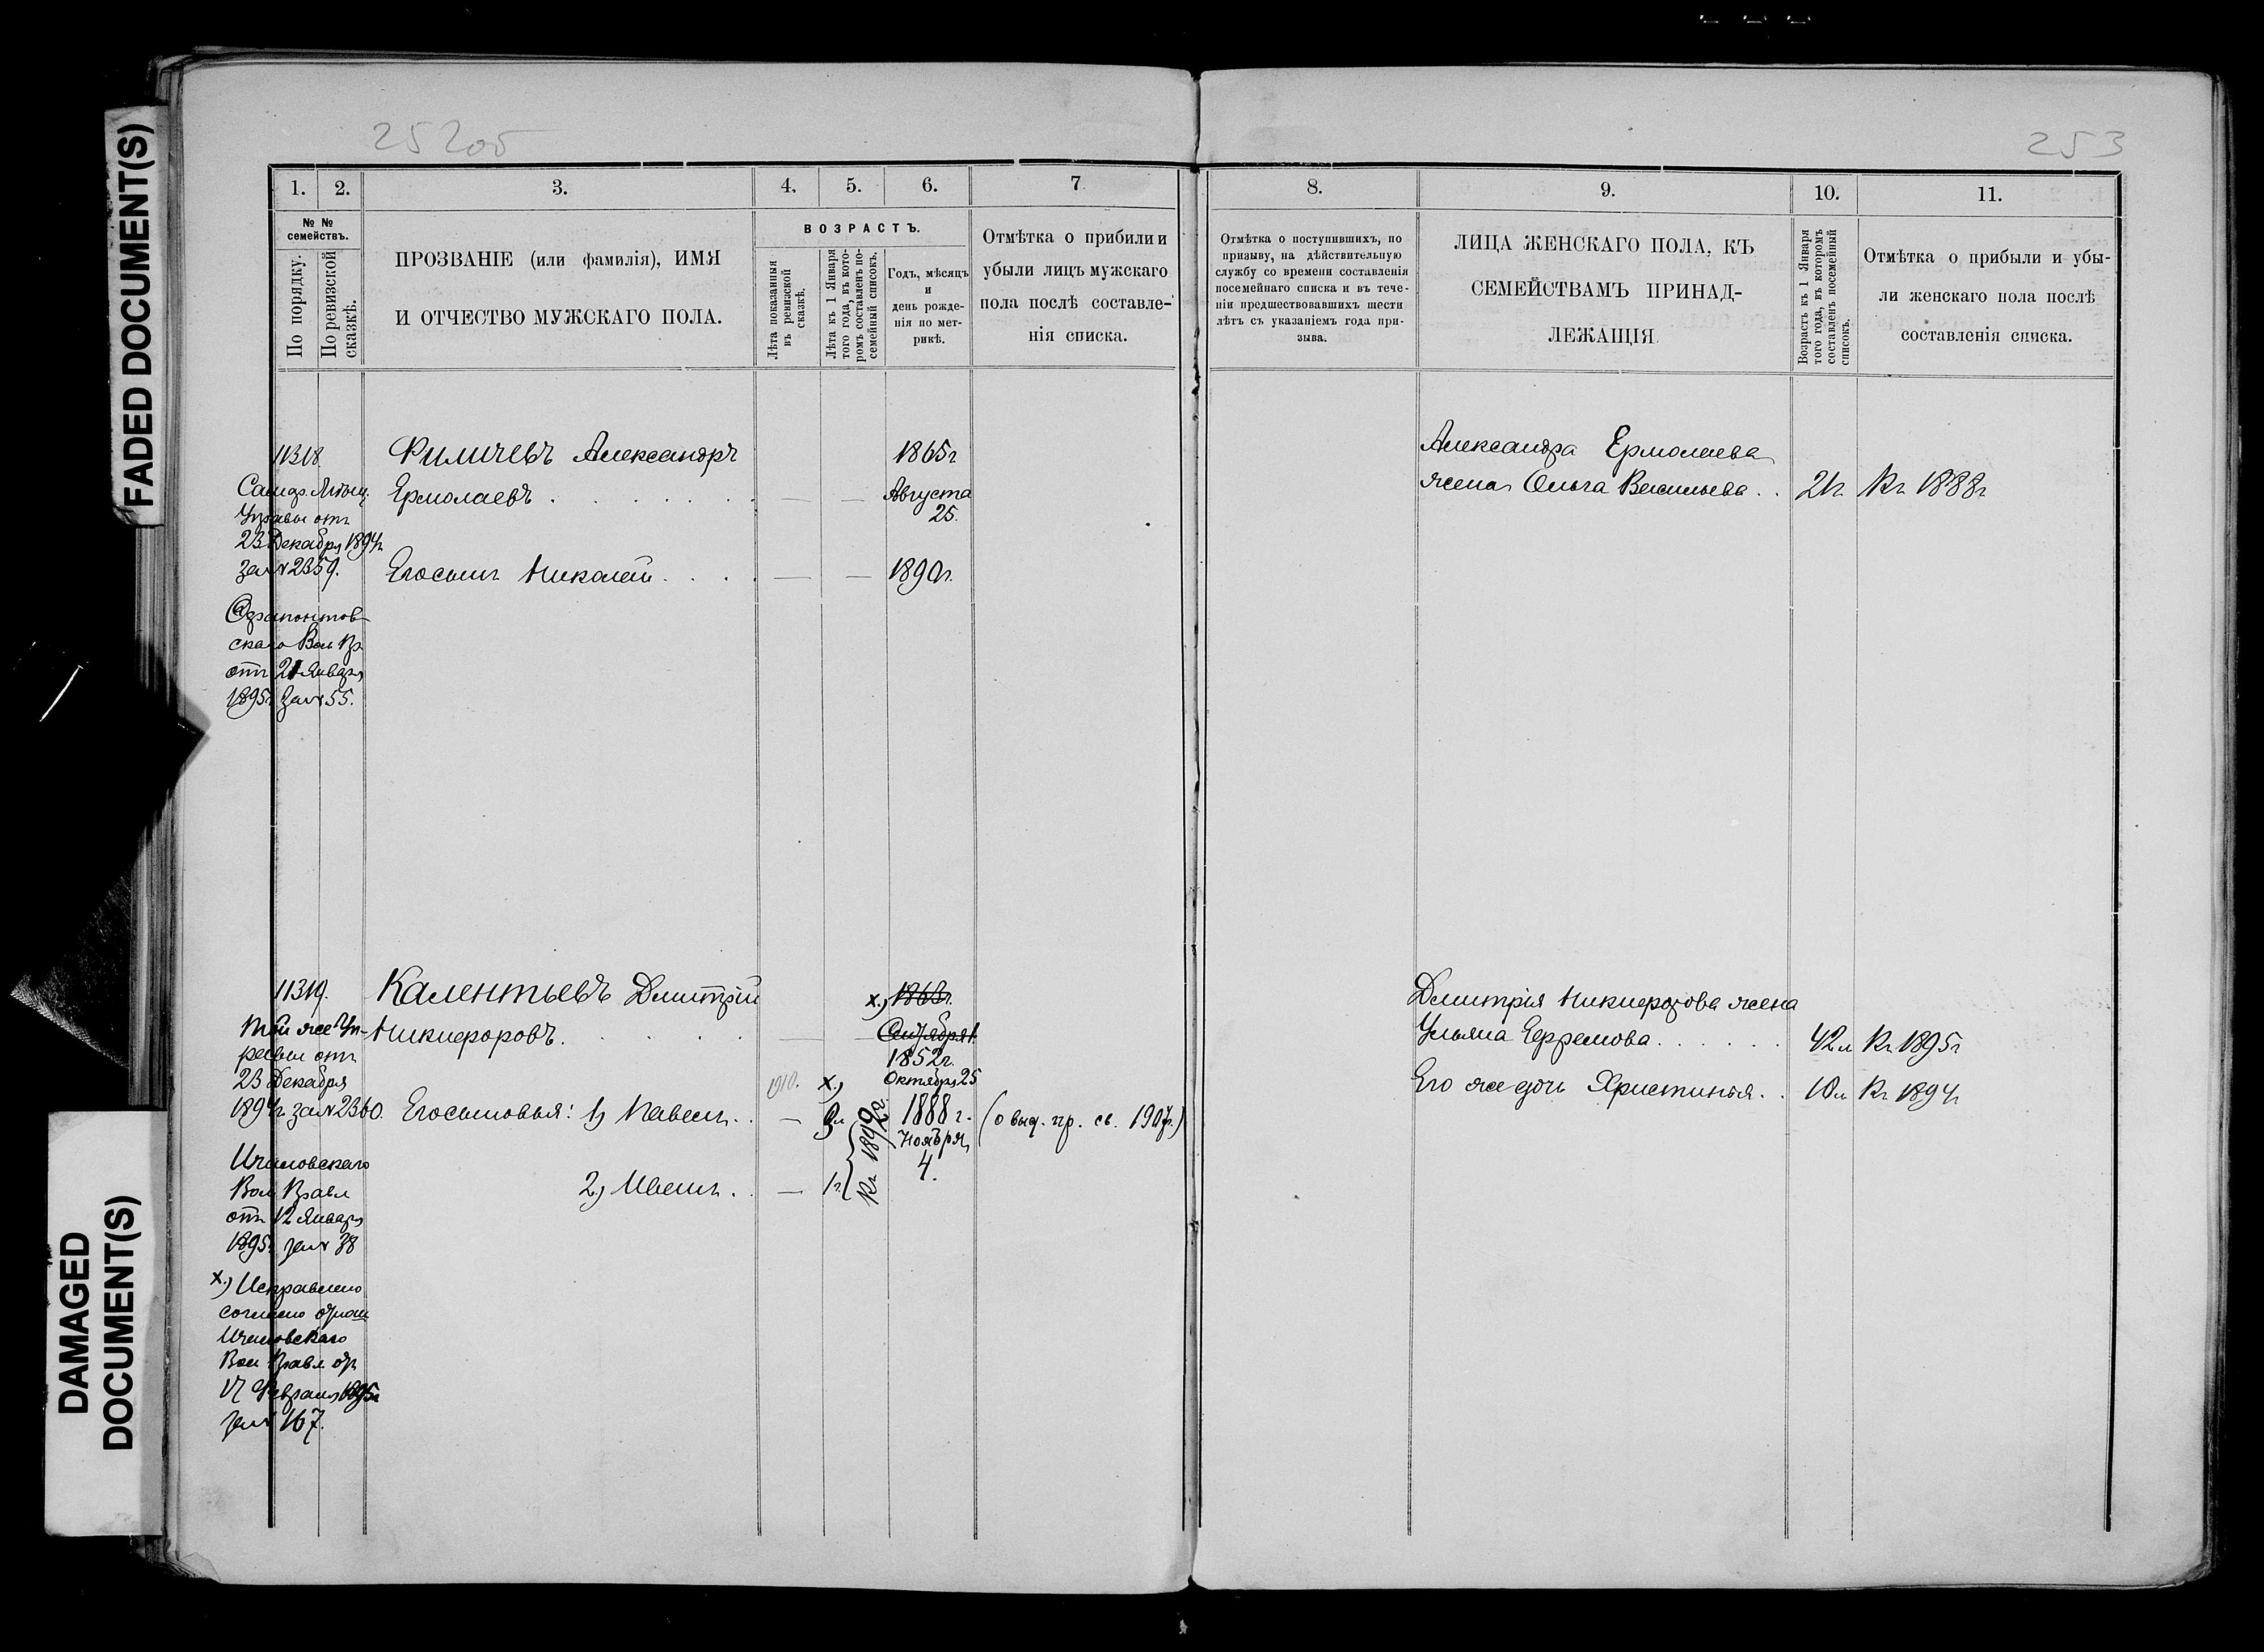 FADED DOCUMENT(S)
DAMAGED
DOCUMENT(S)
253
1. 2. 3. 4. 5. 6. 7
№ №
семействъ.
По порядку.
По ревизской
сказкѣ.
ПРОЗВАНІЕ (или фамилія), ИМЯ
И ОТЧЕСТВО МУЖСКАГО ПОЛА.
ВОЗРАСТЪ.
Лѣта показанныя
въ ревизской
сказкѣ.
Лѣта къ 1 Января
того года, въ кото-
ромъ составленъ по-
семейный списокъ.
Годъ, мѣсяцъ
и
день рожде-
нія по мет-
рикѣ.
Отмѣтка о прибили и
убыли лицъ мужскаго
пола послѣ составле-
нія списка.
11318
Управы отъ
23 Декабря 1894г
за № 2359.
Ферапонтов-
скаго Вол Пр
отъ 21 Января
1895г за № 55.
Филичевъ Александръ
Ермолаевъ
1865г
Августа
25.
Его сынъ Николай
1890г.
11319.
Той же Уп-
равы отъ
23 Декабря
1894г за № 2360.
Вол Правл
отъ 12 Января
1895г за № 38
х) Исправлено
согласно
Вол Правл отъ
17 Февраля 1895г
за № 167.
Калентьевъ Дмитрій
Никифоровъ.
х) 1863г.
1852г.
Октября 25
1910. х)
Его сыновья: 1) Павелъ
1888 г.
Ноября
4.
(о выд. пр. св. 1907г.)
2) Иванъ
1г
8. 9. 10. 11.
Отмѣтка о поступившихъ, по
призыву, на дѣйствительную
службу со времени составленія
посемейнаго списка и въ тече-
ніи предшествовавшихъ шести
лѣтъ съ указаніемъ года при-
зыва.
ЛИЦА ЖЕНСКАГО ПОЛА, КЪ
СЕМЕЙСТВАМЪ ПРИНАД-
ЛЕЖАЩІЯ.
Возрастъ къ 1 Января
того года, въ которомъ
составленъ посемейный
списокъ.
Отмѣтка о прибыли и убы-
ли женскаго пола послѣ
составленія списка.
Александра Ермолаева
жена Ольга Васильева 21г. Къ 1888г
Дмитрія Никифорова жена
Ульяна Ефремова 42л Къ 1895г
Его же дочь Христинья 10л Къ 1894г